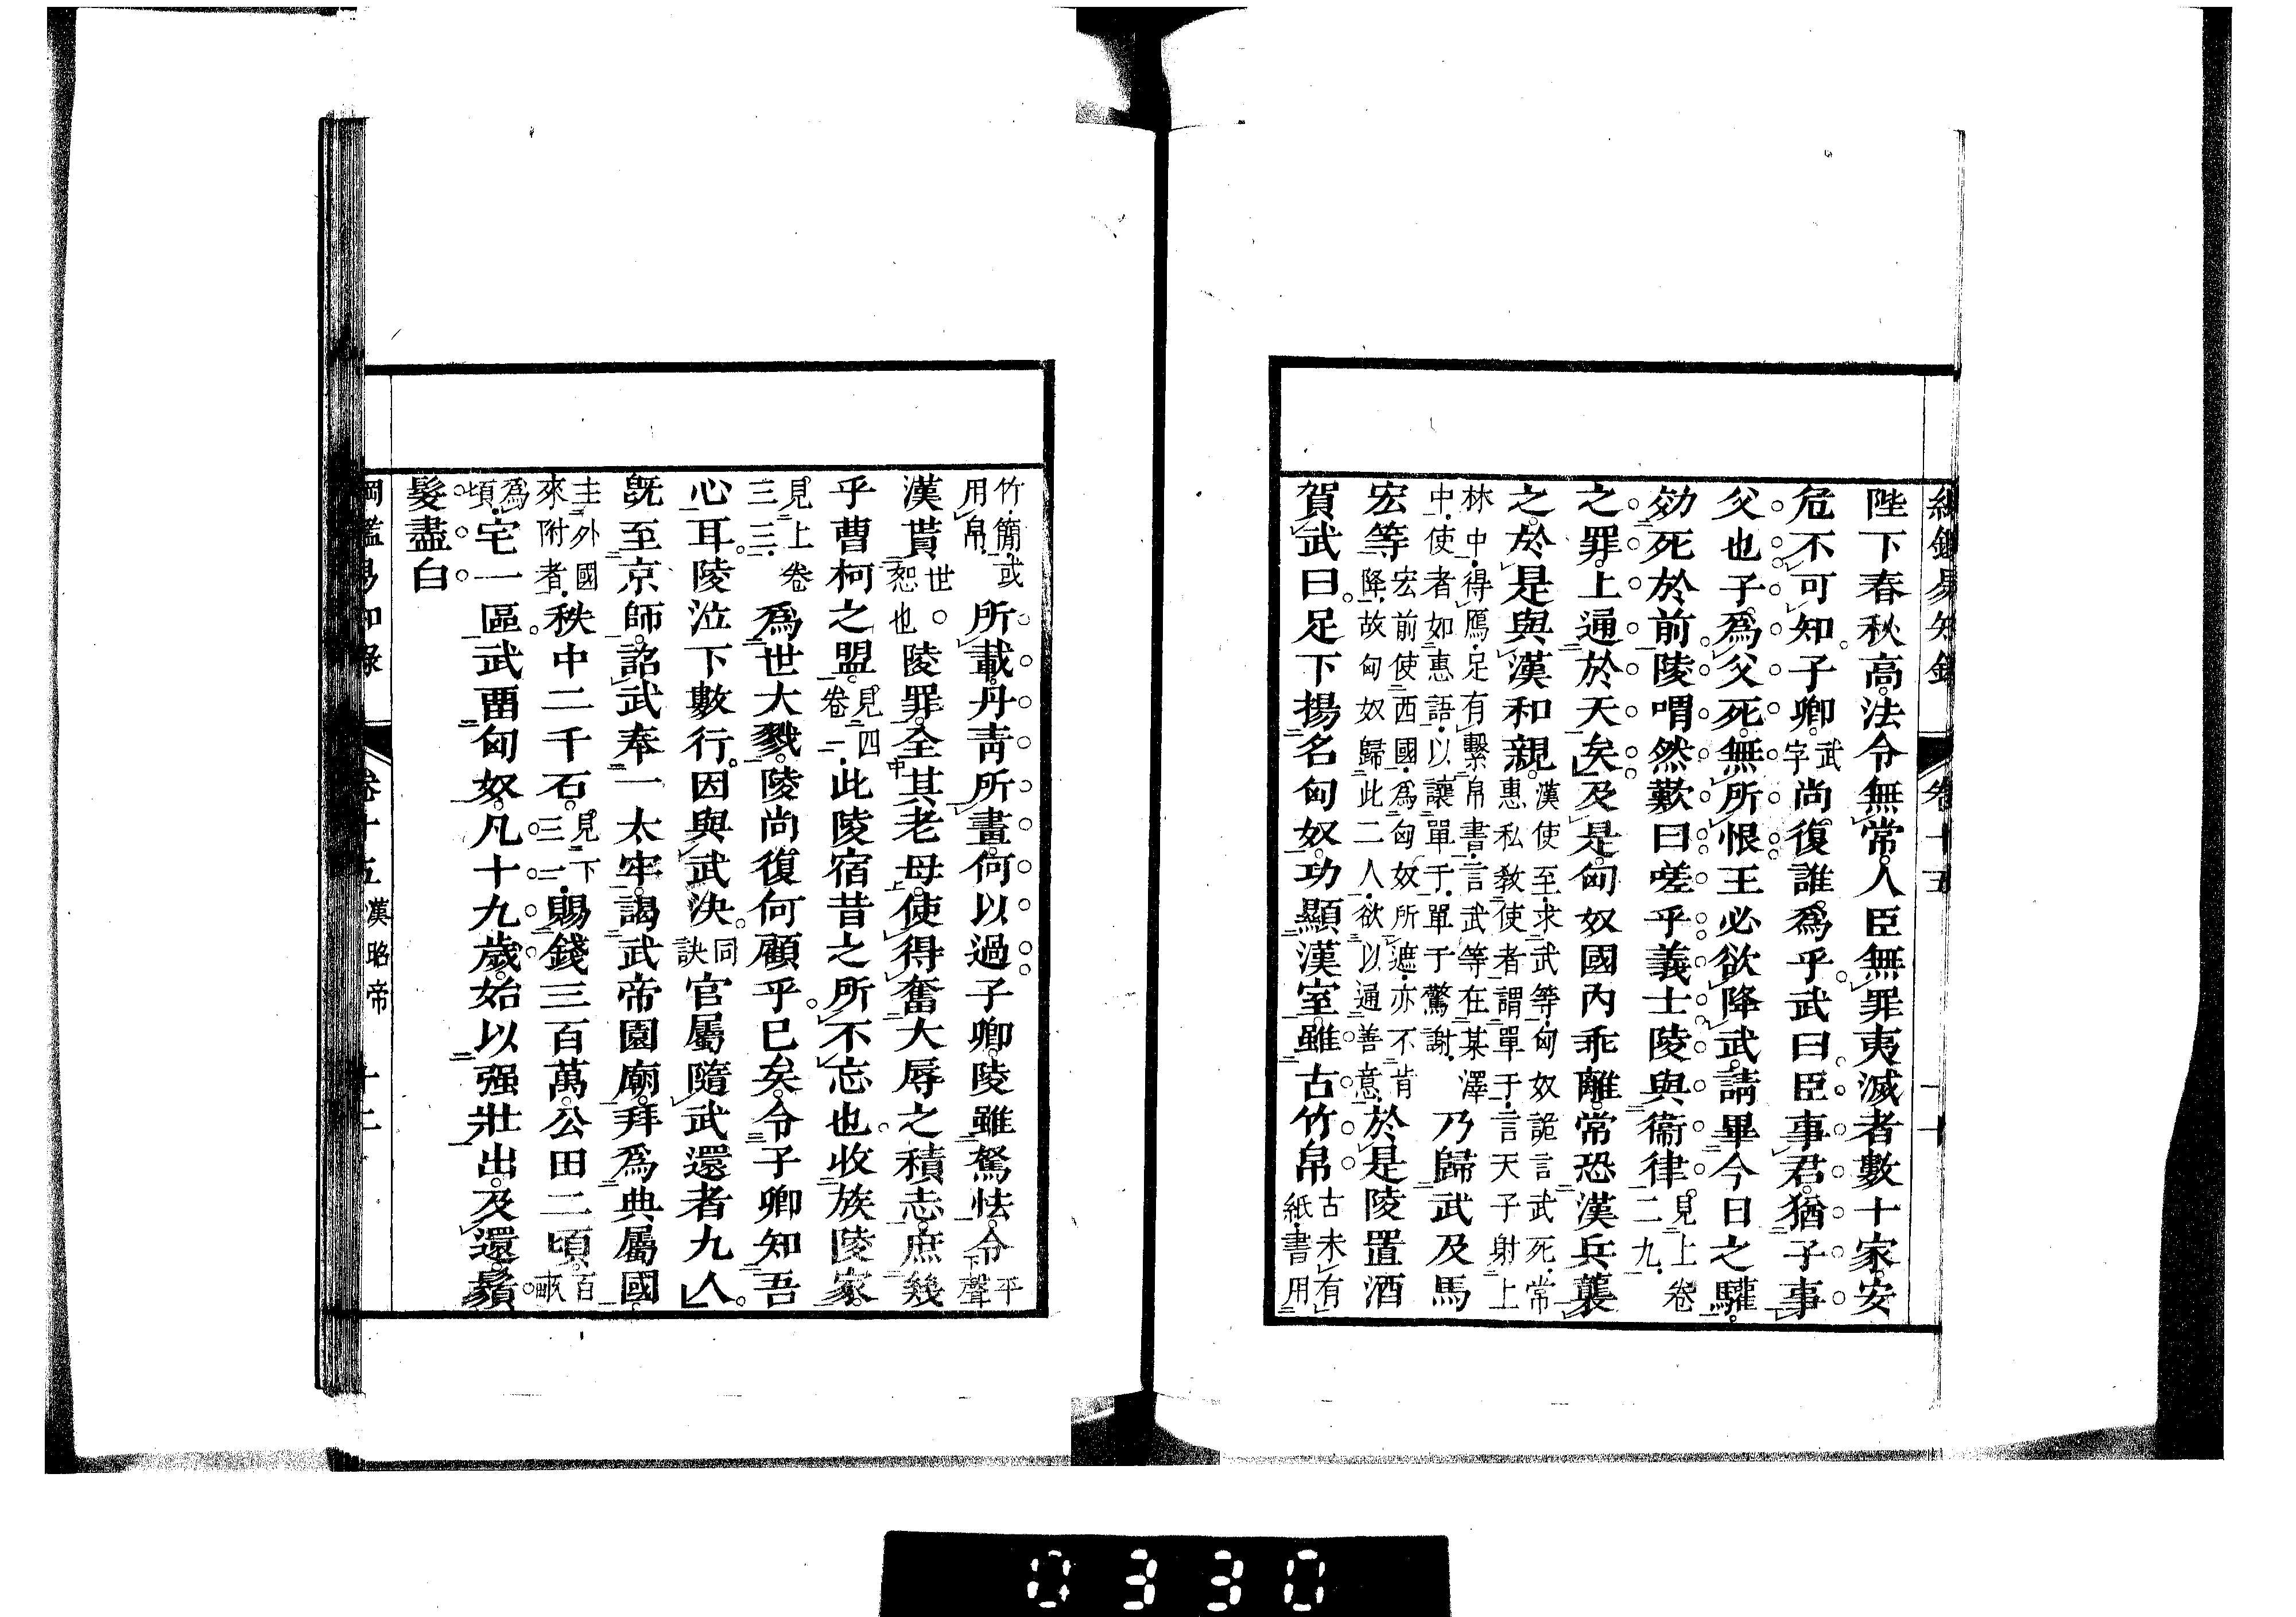 陛下春秋高法令無常人臣無罪夷滅者數十家安
危不可知子卿武字尚復誰爲乎武曰臣事君猶子事
父也子爲父死無所恨王必欲降武請畢今日之驩
効死於前陵喟然歎曰嗟乎義士陵與衞律見上卷二九
之罪上通於天矣及是匈奴國內乖離常恐漢兵襲
之於是與漢和親漢使至求武等匈奴詭言武死常惠私敎使者謂單于言天子射上
林中得鴈足有繫帛書言武等在某澤中使者如惠語以讓單于單于驚謝乃歸武及馬
宏等宏前使西國爲匈奴所遮亦不肯降故匈奴歸此二人欲以通善意於是陵置酒
賀武曰足下揚名匈奴功顯漢室雖古竹帛古未有紙書用
竹簡或用帛所載丹靑所畫何以過子卿陵雖駑怯令平聲
漢貰世恕也陵罪全其老母使得奮大辱之積志庶幾
乎曹柯之盟見四卷一此陵宿昔之所不忘也收族陵家
見上卷三三爲世大戮陵尚復何顧乎已矣令子卿知吾
心耳陵泣下數行因與武決同訣官屬隨武還者九人
旣至京師詔武奉一太牢謁武帝園廟拜爲典屬國
主外國來附者秩中二千石見下三一賜錢三百萬公田二頃百畝
爲頃宅一區武畱匈奴凡十九歲始以强壯出及還鬚
髮盡白
綱鑑易知錄 卷十五 漢昭帝 十二
0330